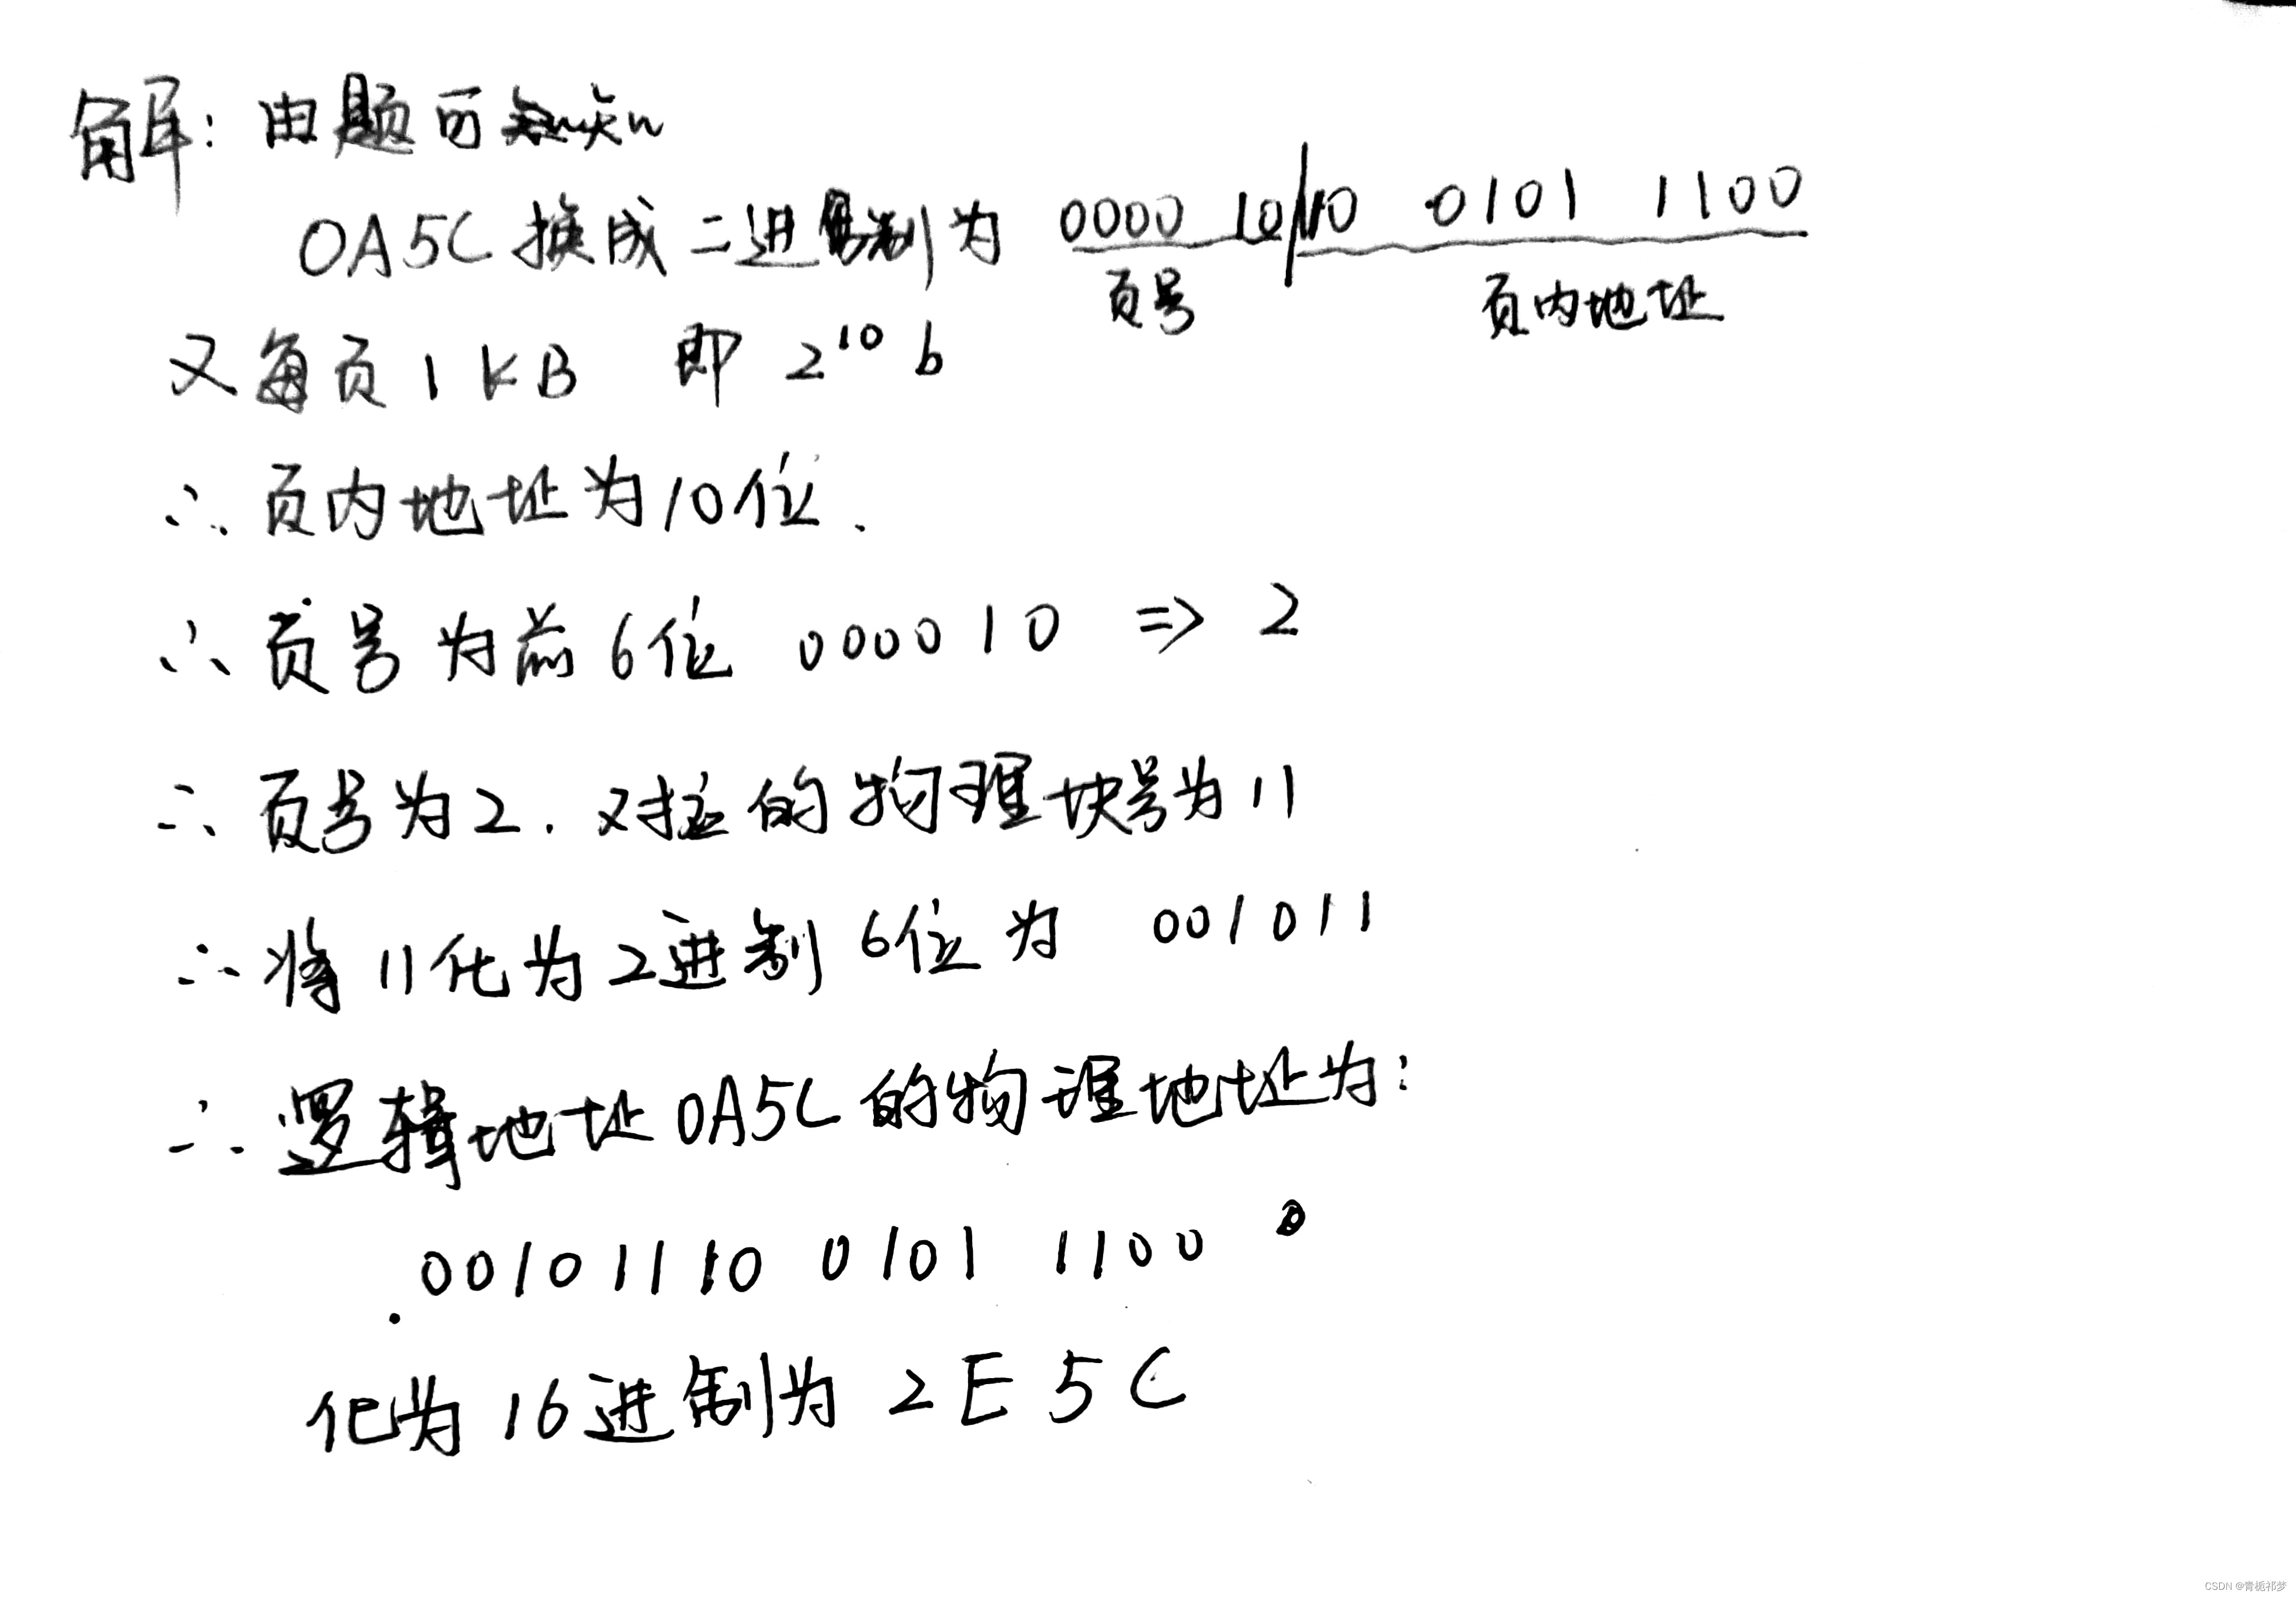 解：由题可知
0A5C 换成二进制为 0000 10/10 0101 1100
页号 页内地址
又每页1KB 即 2¹⁰ b
∴ 页内地址为10位.
∴ 页号为前6位 000010 => 2
∴ 页号为2. 对应的物理块号为11
∴ 将11化为2进制6位为 001011
∴ 逻辑地址0A5C的物理地址为:
00101110 0101 1100
化为16进制为 2E5C
CSDN @青栀祁梦